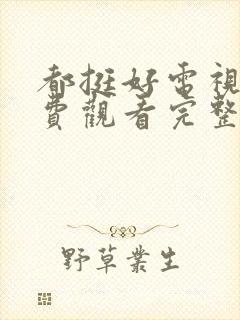 都挺好電視
費觀看完整
野草叢生